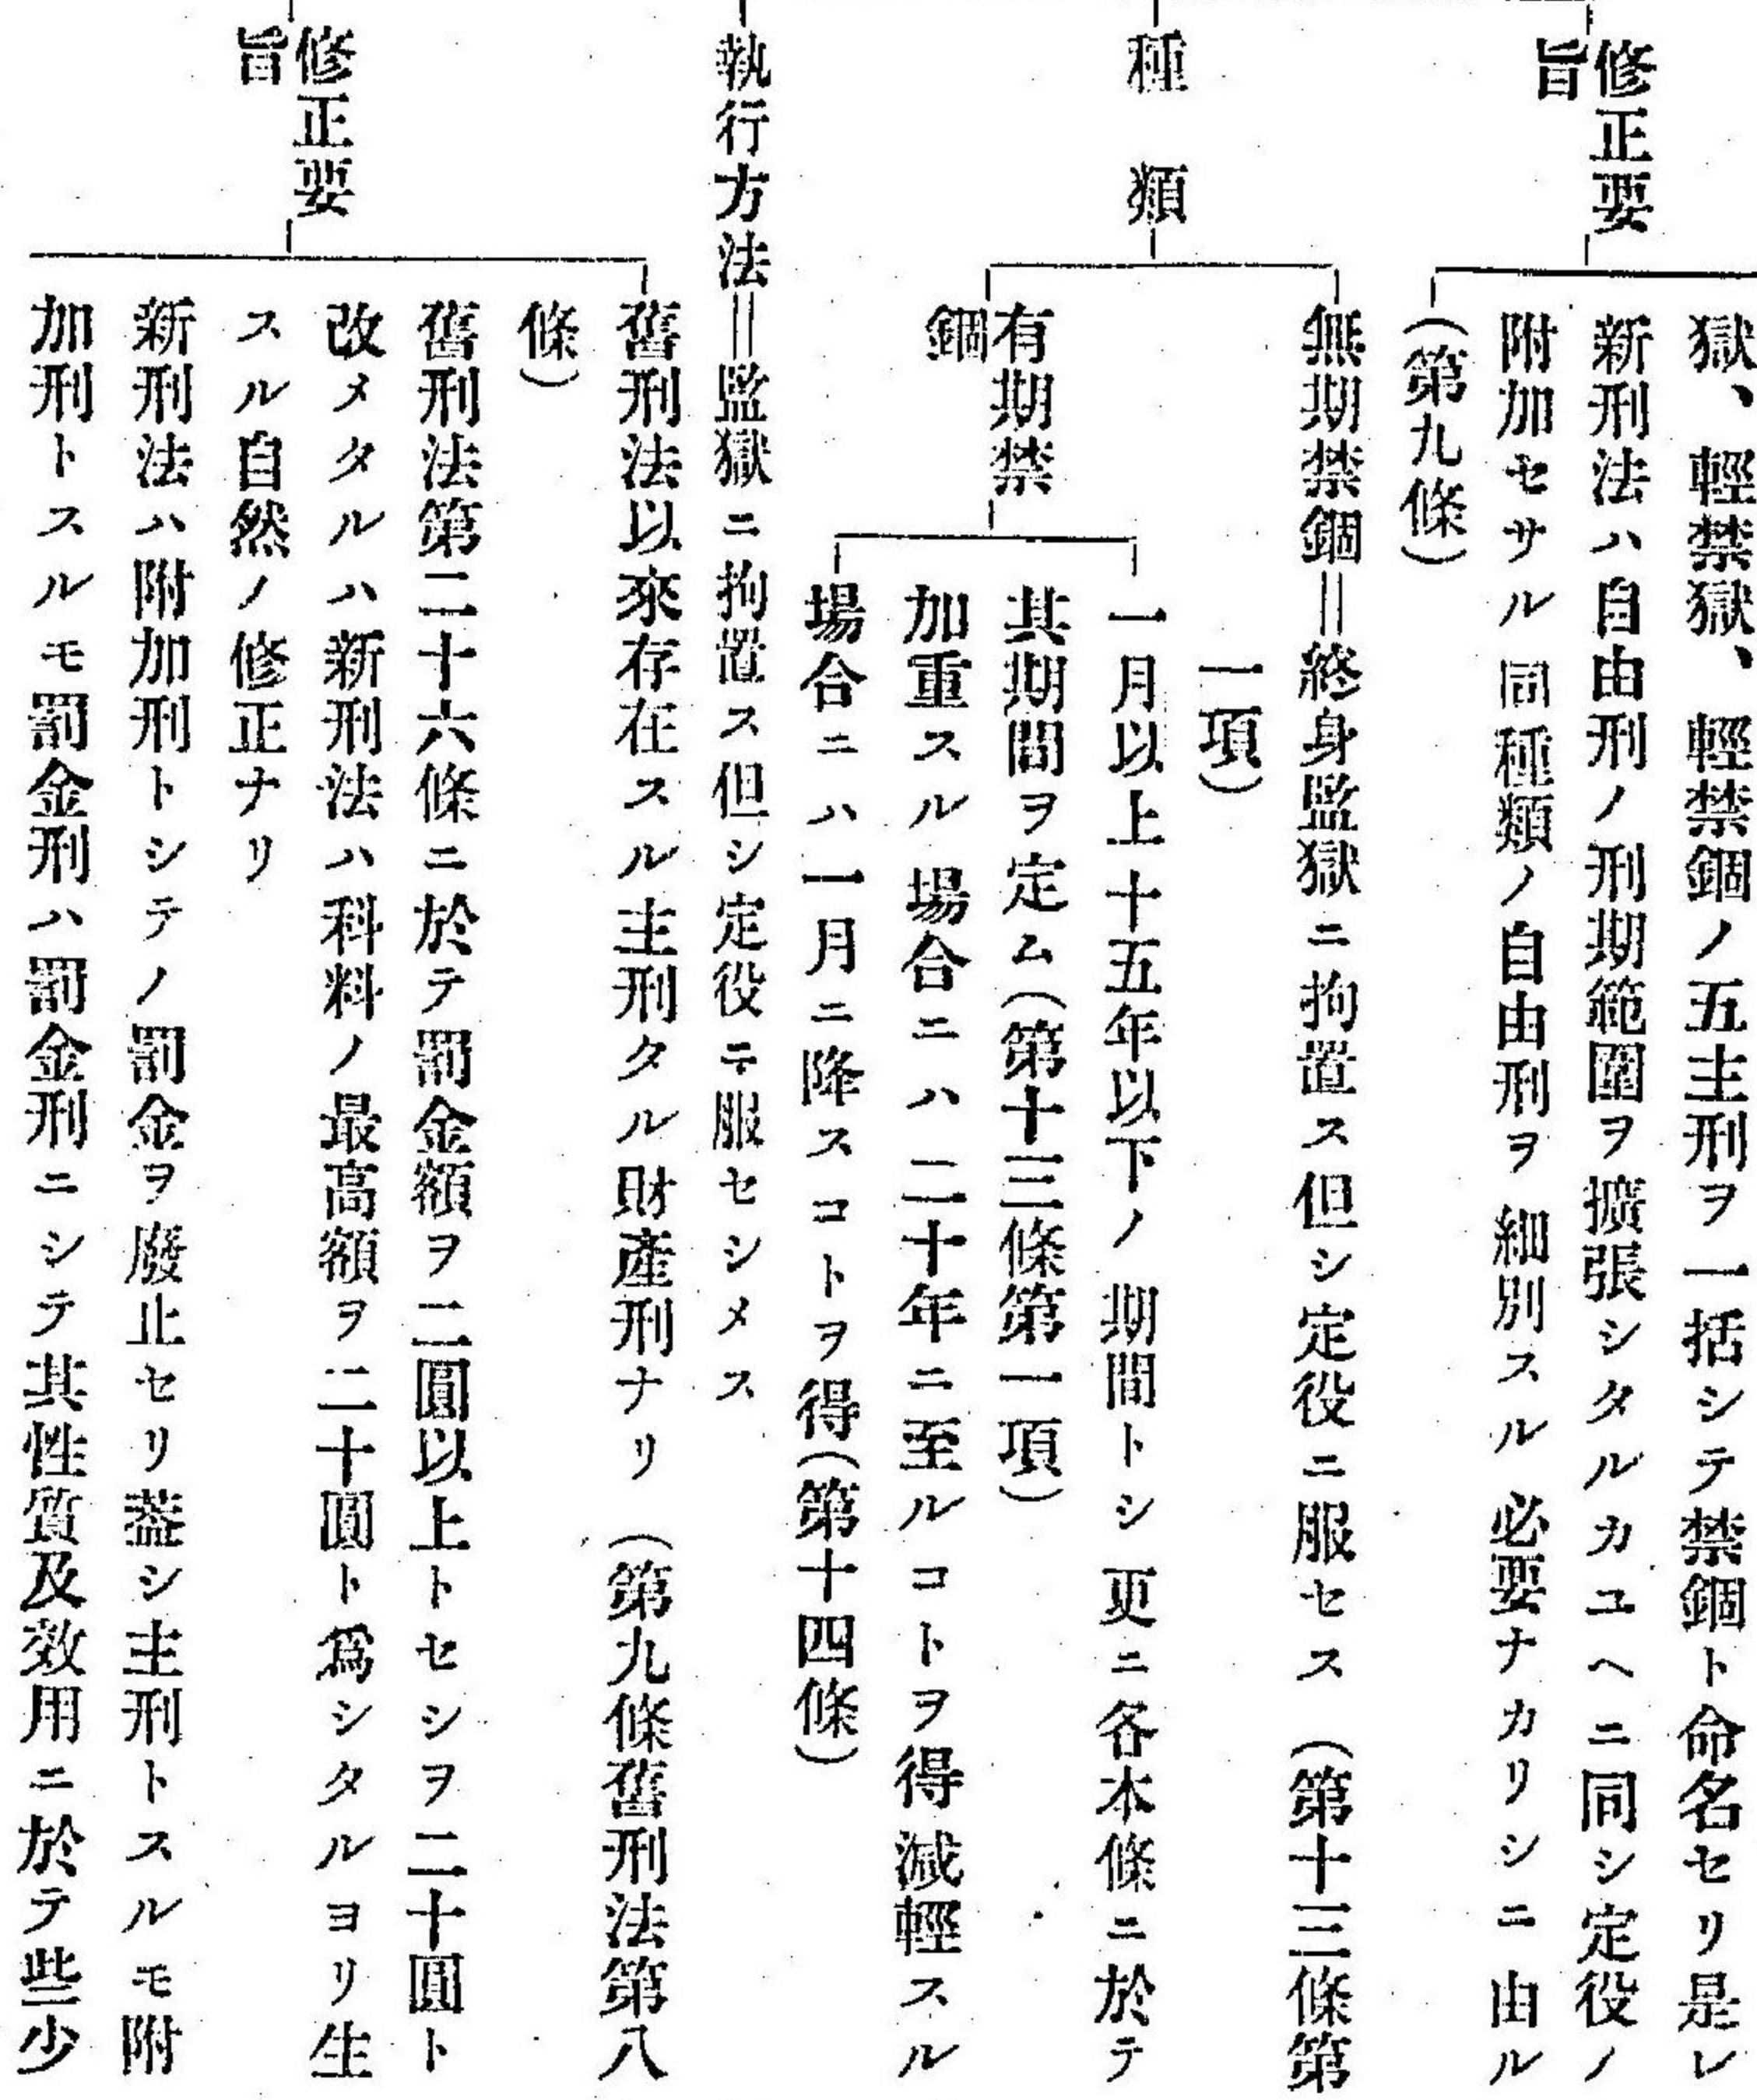 修正要
旨
獄、輕禁獄、輕禁錮ノ五主刑ヲ一括シテ禁錮ト命名セリ是レ
新刑法ハ自由刑ノ刑期範圍ヲ擴張シタルカユヘニ同シ定役ノ
附加セサル同種類ノ自由刑ヲ細別スル必要ナカリシニ由ル
(第九條)
種類
無期禁錮=終身監獄ニ拘置ス但シ定役ニ服セス(第十三條第
一項)
有期禁
錮
一月以上十五年以下ノ期間トシ更ニ各本條ニ於テ
其期間ヲ定ム(第十三條第一項)
加重スル場合ニハ二十年ニ至ルコトヲ得減輕スル
場合ニハ一月ニ降スコトヲ得(第十四條)
執行方法=監獄ニ拘置ス但シ定役ニ服セシメス
舊刑法以來存在スル主刑タル財產刑ナリ(第九條舊刑法第八
條)
修正要
旨
舊刑法第二十六條ニ於テ罰金額ヲ二圓以上トセシヲ二十圓ト
改メタルハ新刑法ハ科料ノ最高額ヲ二十圓ト爲シタルヨリ生
スル自然ノ修正ナリ
新刑法ハ附加刑トシテノ罰金ヲ廢止セリ蓋シ主刑トスルモ附
加刑トスルモ罰金刑ハ罰金刑ニシテ其性質及效用ニ於テ些少